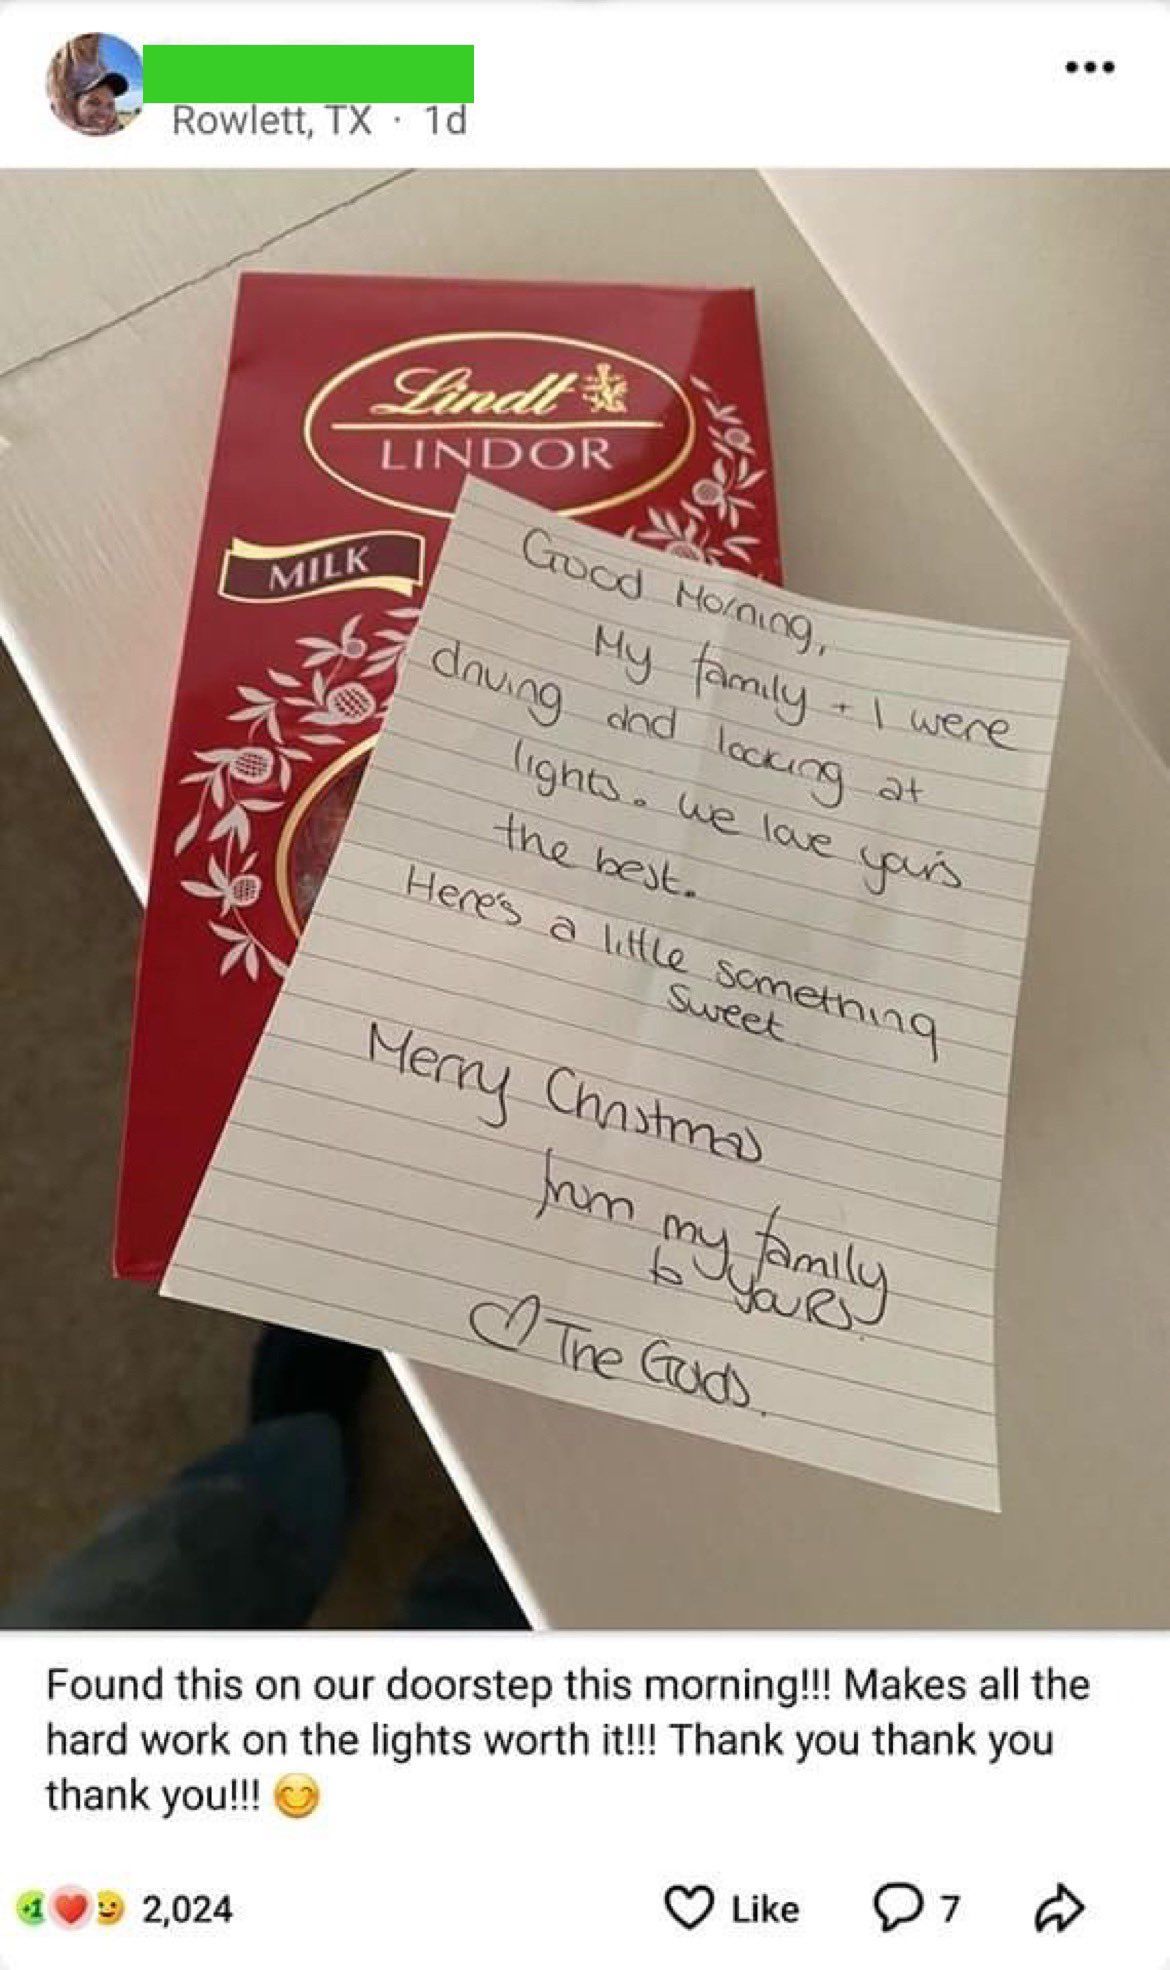 Rowlett, TX · 1d
Lindt
LINDOR
MILK
Good Morning,
My family + I were
driving and looking at
lights. We love yours
the best.
Here's a little something
sweet.
Merry Christmas
from my family
to yours.
♡ The Guds.
Found this on our doorstep this morning!!! Makes all the
hard work on the lights worth it!!! Thank you thank you
thank you!!! 😊
+1 2,024
Like
7